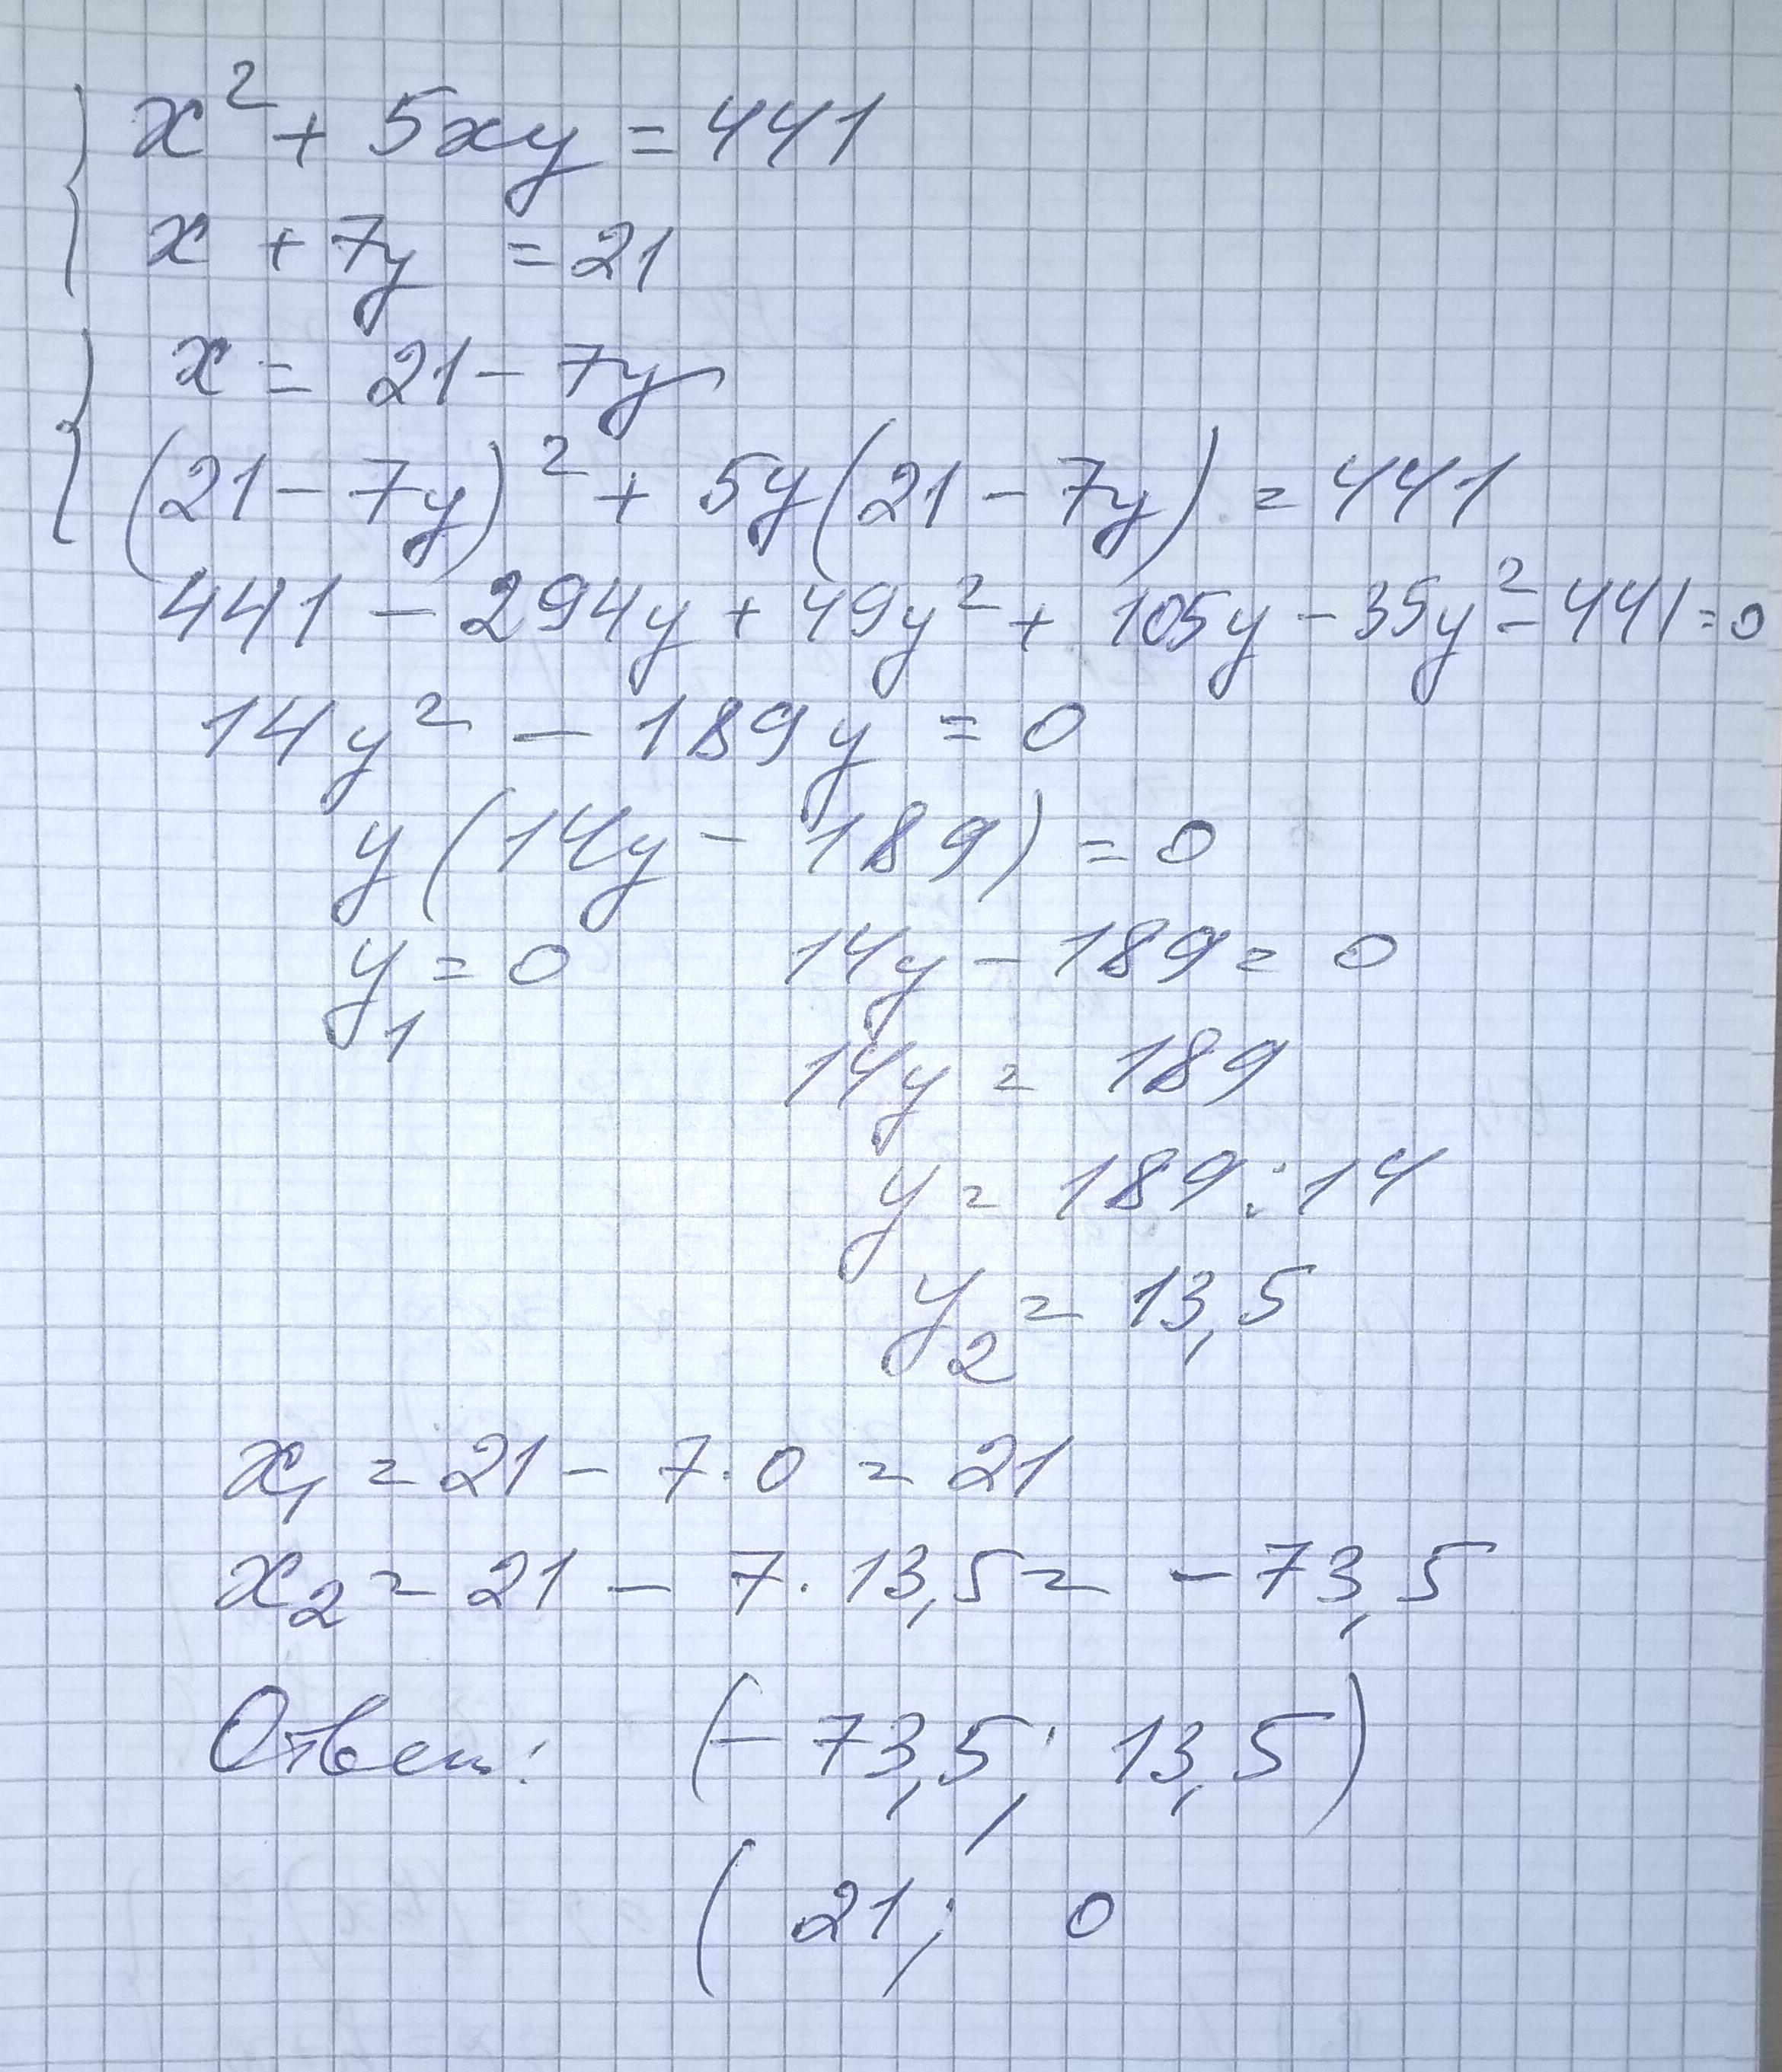 x² + 5xy = 441
x + 7y = 21
x = 21 - 7y
(21 - 7y)² + 5y(21 - 7y) = 441
441 - 294y + 49y² + 105y - 35y² - 441 = 0
14y² - 189y = 0
y(14y - 189) = 0
y₁ = 0 14y - 189 = 0
14y = 189
y = 189 : 14
y₂ = 13,5
x₁ = 21 - 7 · 0 = 21
x₂ = 21 - 7 · 13,5 = -73,5
Ответ: (-73,5; 13,5)
(21; 0